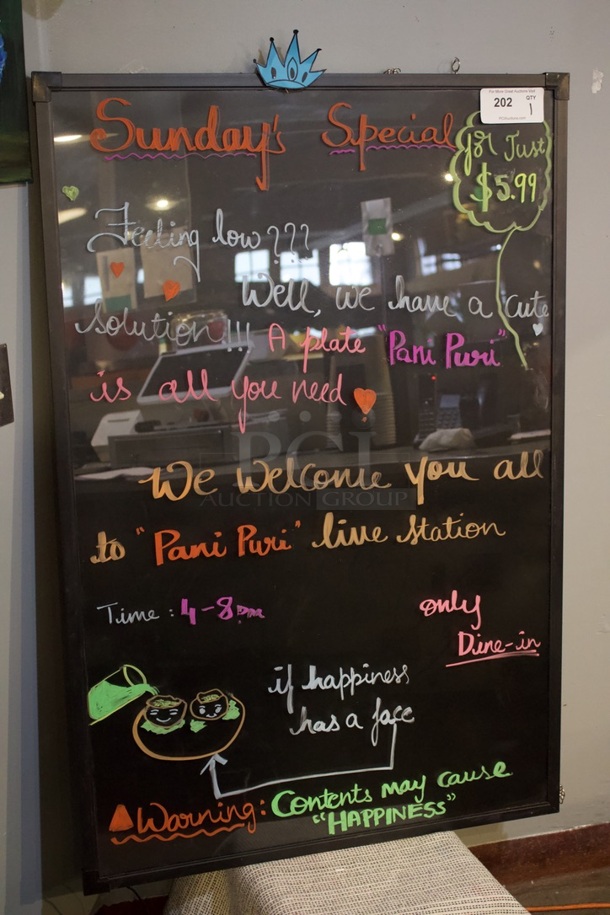 202
QTY
1
Sunday's Special
for Just
$5.99
Feeling low???
Well, we have a cute
solution!!! A plate "Pani Puri"
is all you need
PCI
AUCTION GROUP
We Welcome you all
to "Pani Puri" live station
Time: 4-8pm
only
Dine-in
if happiness
has a face
Warning: Contents may cause
"HAPPINESS"